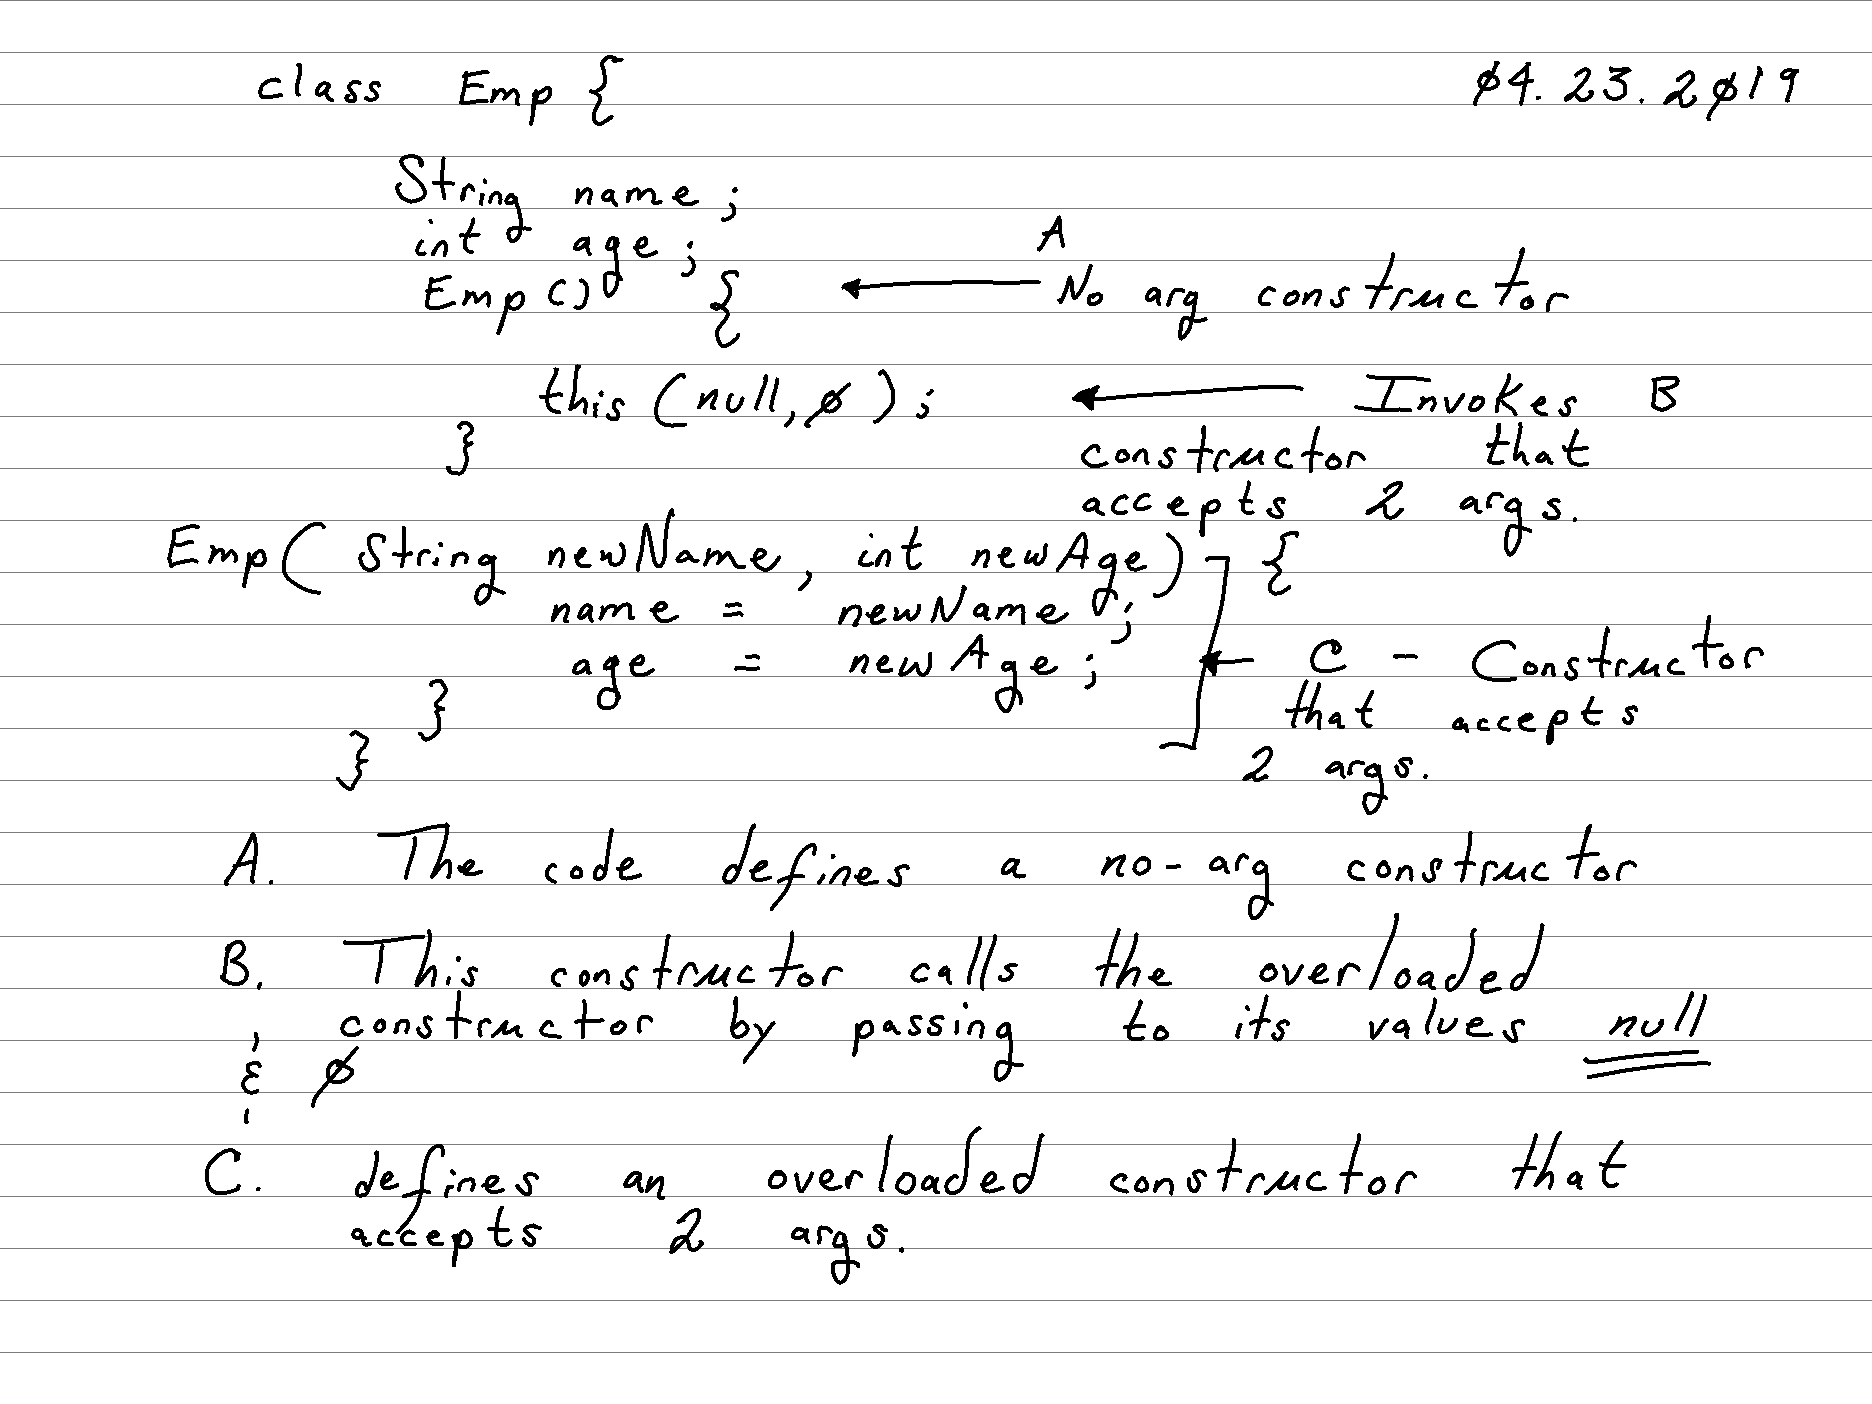 class Emp { 04.23.2019
String name;
int age;
A
Emp() { No arg constructor
this (null, 0); Invokes B
} constructor that
accepts 2 args.
Emp( String newName, int newAge) {
name = newName;
age = newAge; C - Constructor
} that accepts
} 2 args.
A. The code defines a no-arg constructor
B. This constructor calls the overloaded
constructor by passing to its values null
& 0
C. defines an overloaded constructor that
accepts 2 args.